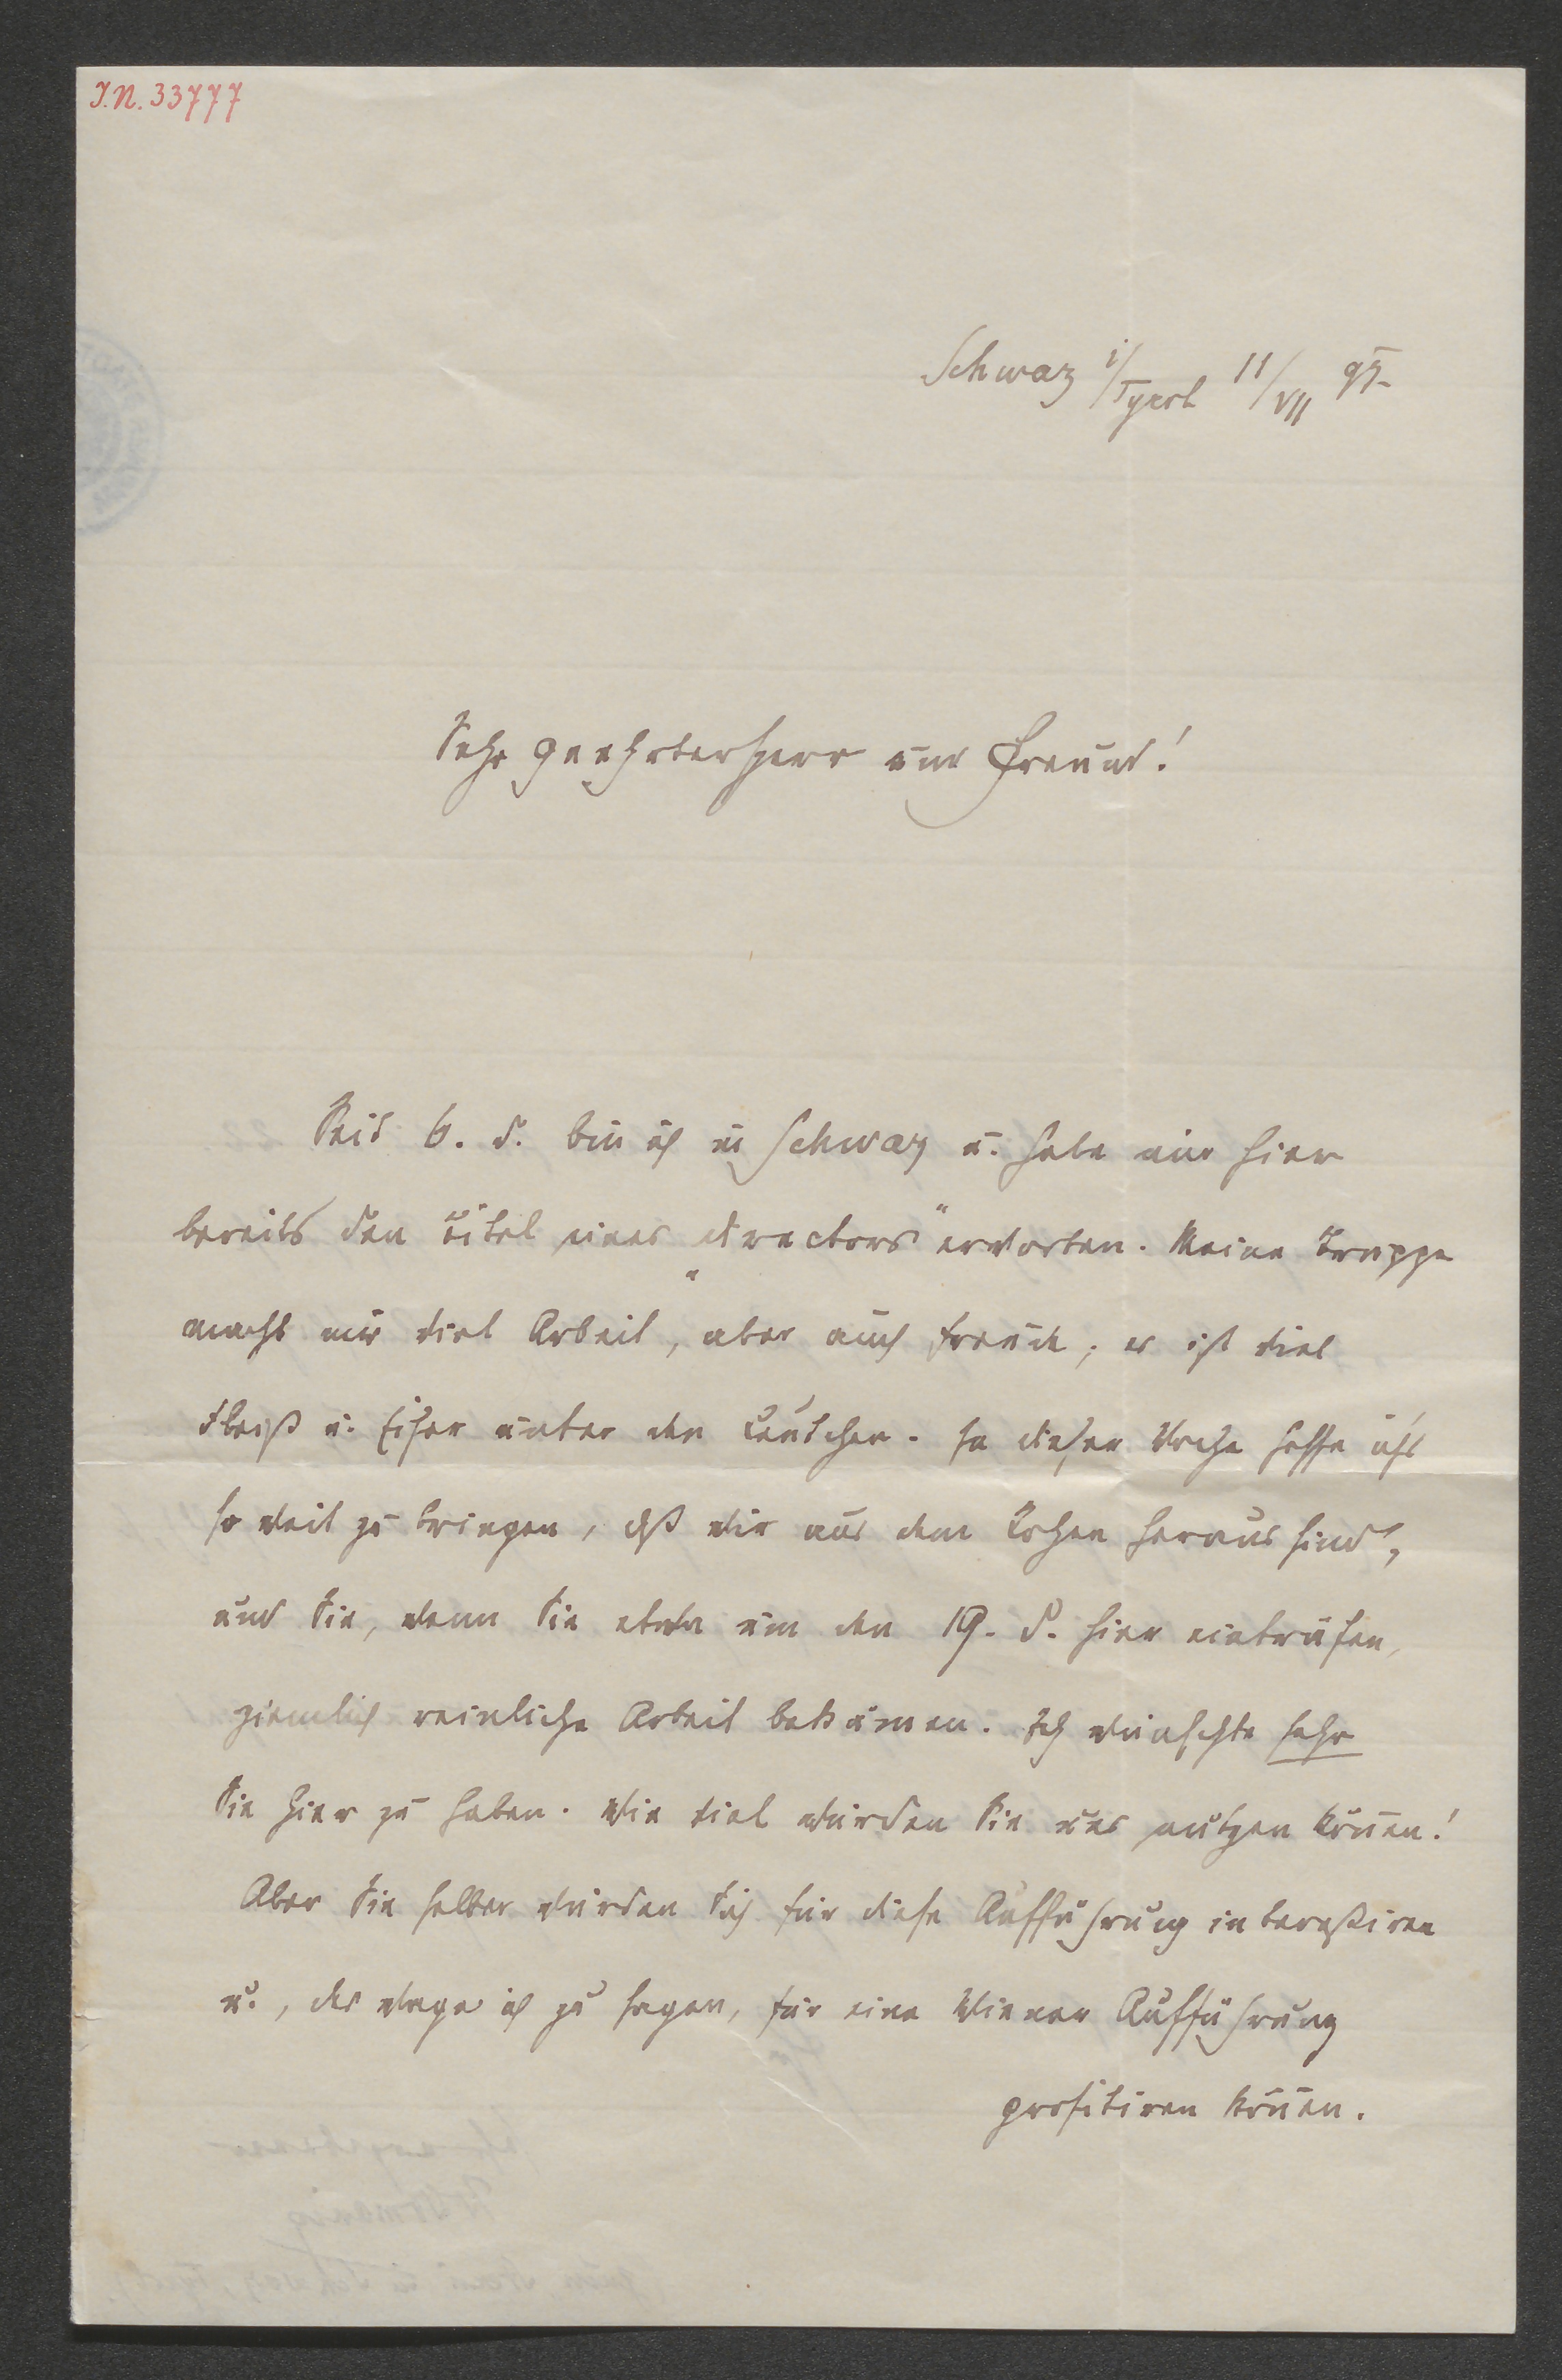 J.N. 33777
Schwaz i/Tyrol 11/VII 95.
Sehr geehrter Herr und Freund!
Seit 6. d. bin ich in Schwaz u. habe mir hier
bereits den Titel eines „Directors“ erworben. Meine Truppe
macht mir viel Arbeit, aber auch Freude; es ist viel
Fleiß u. Eifer unter den Leutchen. In dieser Woche hoffe ich's
so weit zu bringen, dß wir aus dem Rohen heraus sind,
und Sie, wenn Sie etwa um den 19. d. hier einträfen,
ziemlich reinliche Arbeit bekämen. Ich wünschte sehr
Sie hier zu haben. Wie viel würden Sie uns nutzen können!
Aber Sie selber würden sich für diese Aufführung intereßiren
u., das wage ich zu sagen, für eine Wiener Aufführung
profitiren können.